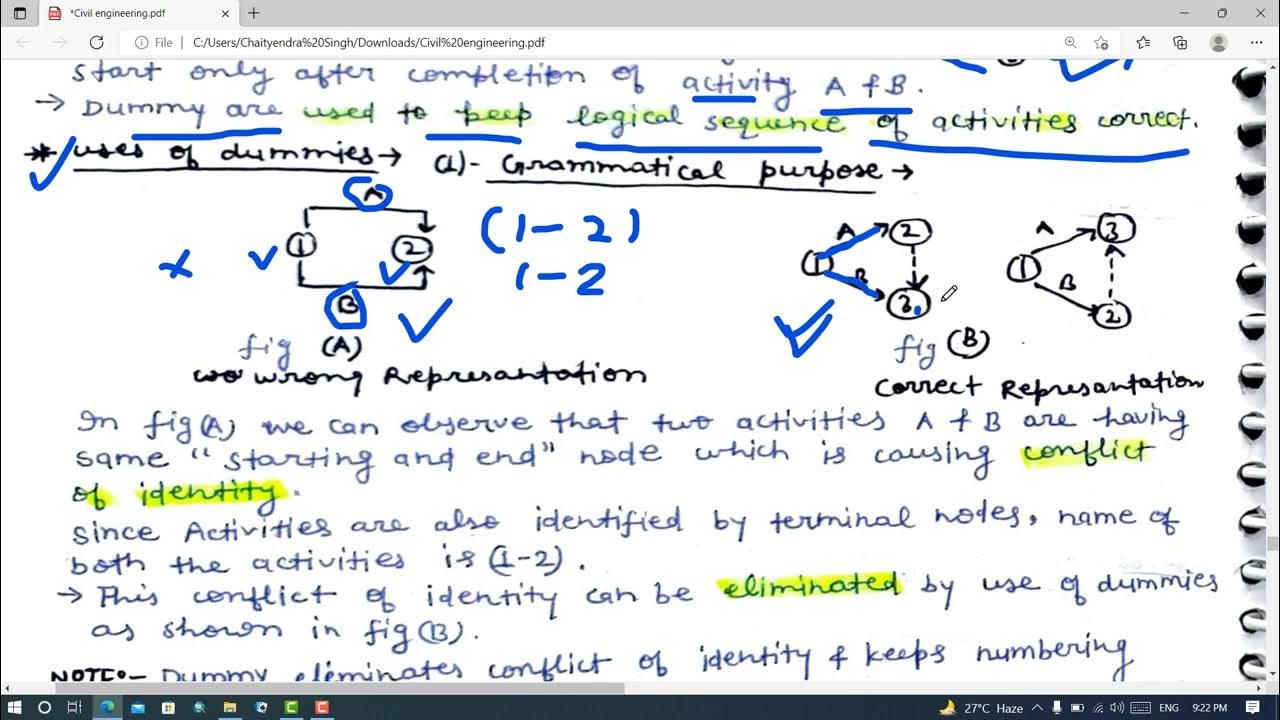 *Civil engineering.pdf
File C:/Users/Chaityendra%20Singh/Downloads/Civil%20engineering.pdf
start only after completion of activity A & B.
→ Dummy are used to keep logical sequence of activities correct.
* uses of dummies → (1)- Grammatical purpose →
A
1 2
B
(1-2)
1-2
A 2
1
B 3
A 3
1
B 2
fig (A)
wrong Represantation
fig (B)
Correct Represantation
In fig(A) we can observe that two activities A & B are having
same "starting and end" node which is causing conflict
of identity.
since Activities are also identified by terminal nodes, name of
both the activities is (1-2).
→ This conflict of identity can be eliminated by use of dummies
as shown in fig(B).
NOTE:- Dummy eliminates conflict of identity & keeps numbering
27°C Haze ENG 9:22 PM